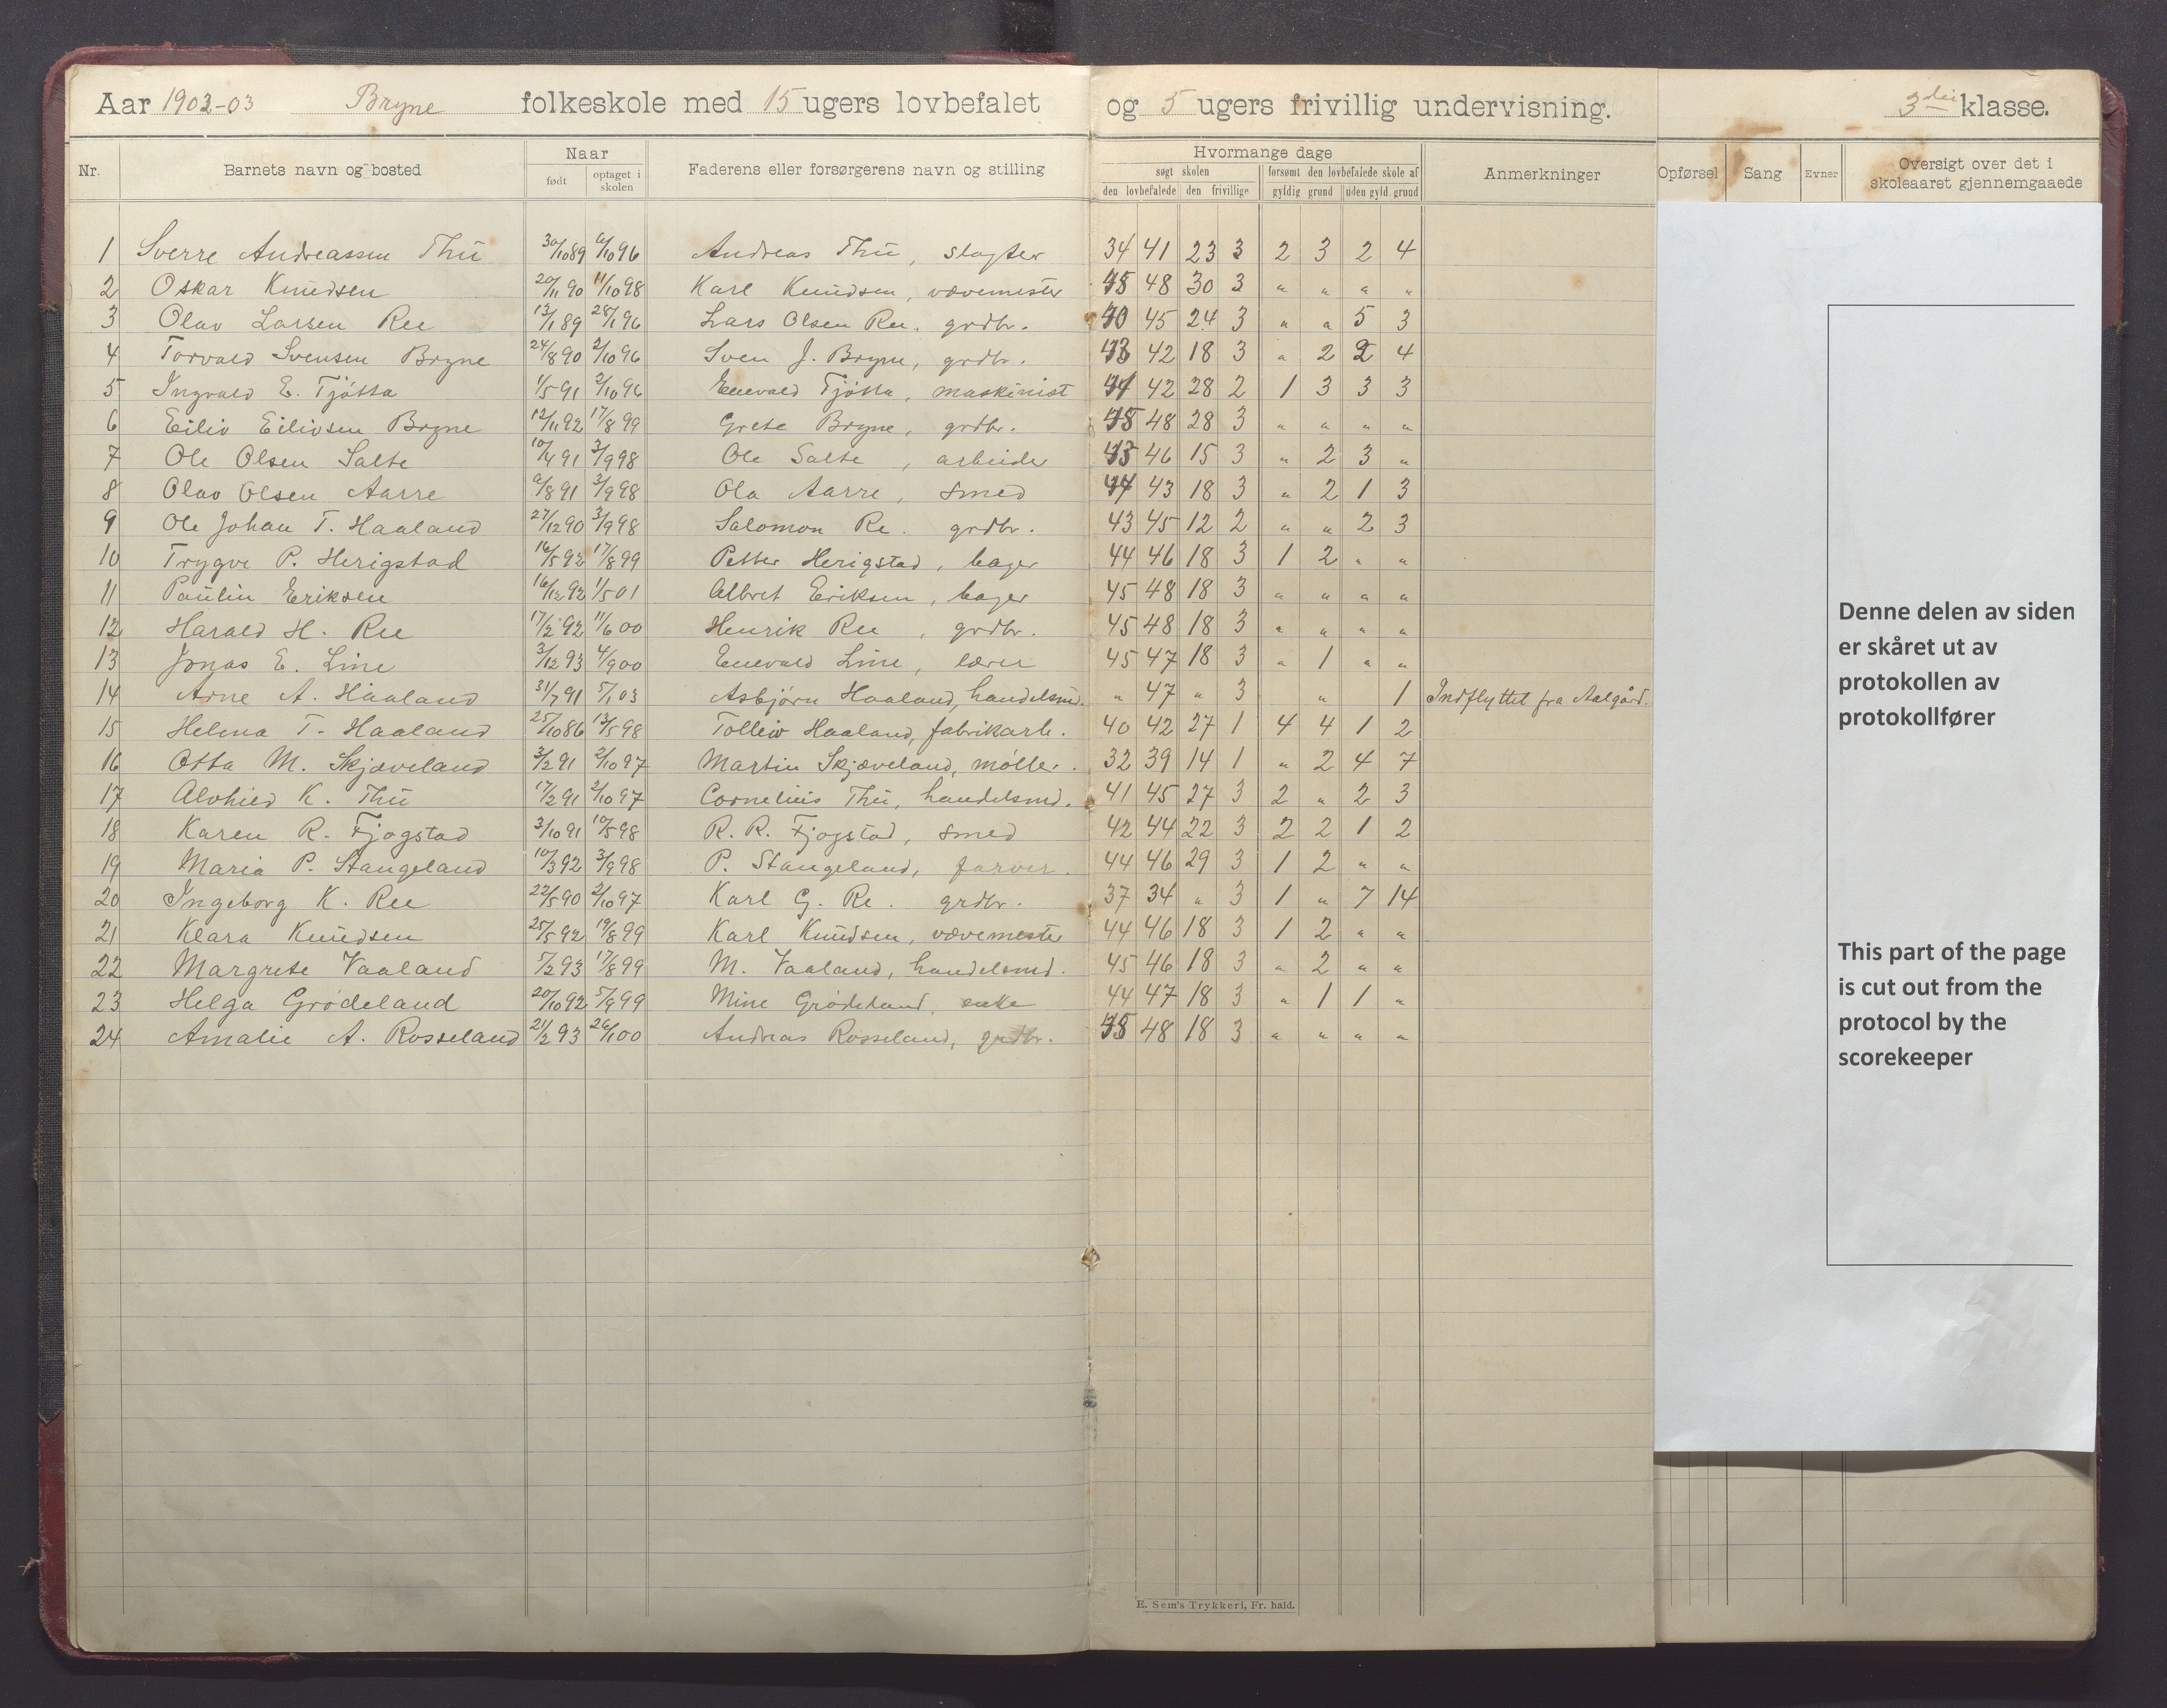 Aar 1902-03 Bryne folkeskole med 15 ugers lovbefalet og 5 ugers frivillig undervisning. 3die klasse.
Nr. Barnets navn og bosted Naar født optaget i skolen Faderens eller forsørgerens navn og stilling Hvormange dage søgt skolen den lovbefalede den frivillige forsømt den lovbefalede skole af gyldig grund uden gyld. grund Anmerkninger Opførsel Sang Evner Oversigt over det i skoleaaret gjennemgaaede
1 Sverre Andreassen Thu 30/10 89 6/10 96 Andreas Thu, slagter 34 41 23 3 2 3 2 4
2 Oskar Knudsen 20/11 90 11/10 98 Karl Knudsen, vævemester 45 48 30 3 " " " "
3 Olav Larsen Ree 13/1 89 28/1 96 Lars Olsen Ree. grdbr. 40 45 24 3 " " 5 3
4 Torvald Svensen Bryne 24/8 90 2/10 96 Sven J. Bryne, grdbr. 43 42 18 3 " 2 2 4
5 Ingvald E. Tjøtta 1/5 91 2/10 96 Enevald Tjøtta, maskinist 42 28 2 1 3 3 3
6 Eiliv Eilivsen Bryne 12/11 92 17/8 99 Grete Bryne, grdbr. 45 48 28 3 " " " "
7 Ole Olsen Salte 10/4 91 3/9 98 Ole Salte, arbeider 43 46 15 3 " 2 3 "
8 Olav Olsen Aarre 9/8 91 3/9 98 Ola Aarre, smed 44 43 18 3 " 2 1 3
9 Ole Johan T. Haaland 27/12 90 3/9 98 Salomon Re. grdbr. 43 45 12 2 " " 2 3
10 Trygve P. Herigstad 16/5 92 17/8 99 Petter Herigstad, bager 44 46 18 3 1 2 " "
11 Paulin Eriksen 16/12 92 1/5 01 Albret Eriksen, bager 45 48 18 3 " " " "
12 Harald H. Ree 17/2 92 11/6 00 Henrik Ree, grdbr. 45 48 18 3 " " " "
13 Jonas E. Line 3/12 93 4/9 00 Enevald Line, lærer 45 47 18 3 " 1 " "
14 Arne A. Haaland 31/7 91 5/1 03 Asbjørn Haaland, handelsmd. " 47 " 3 " 1 Indflyttet fra Aalgård.
15 Helma T. Haaland 25/10 86 13/5 98 Folleiv Haaland, fabrikarb. 40 42 27 1 4 4 1 2
16 Otta M. Skjæveland 3/2 91 2/10 97 Martin Skjæveland, møller. 32 39 14 1 " 2 4 7
17 Alvhied K. Thu 17/2 91 2/10 97 Cornelius Thu, handelsmd. 41 45 27 3 2 " 2 3
18 Karen R. Fjogstad 3/10 91 10/5 98 R. R. Fjogstad, smed 42 44 22 3 2 2 1 2
19 Maria P. Stangeland 10/3 92 3/9 98 P. Stangeland, farver. 44 46 29 3 1 2 " "
20 Ingeborg K. Ree 22/5 90 2/10 97 Karl G. Re. grdbr. 37 34 " 3 1 " 7 14
21 Klara Knudsen 25/5 92 19/8 99 Karl Knudsen, vævemester 44 46 18 3 1 2 " "
22 Margrete Vaaland 5/2 93 17/8 99 M. Vaaland, handelsmd. 45 46 18 3 " 2 " "
23 Helga Grødeland 20/10 92 5/9 99 Mine Grødeland, enke 44 47 18 3 " 1 1 "
24 Amalie A. Rosseland 21/2 93 26/1 00 Andreas Rosseland, grdbr. 45 48 18 3 " " " "
Denne delen av siden
er skåret ut av
protokollen av
protokollfører
This part of the page
is cut out from the
protocol by the
scorekeeper
E. Sem's Trykkeri, Fr. hald.